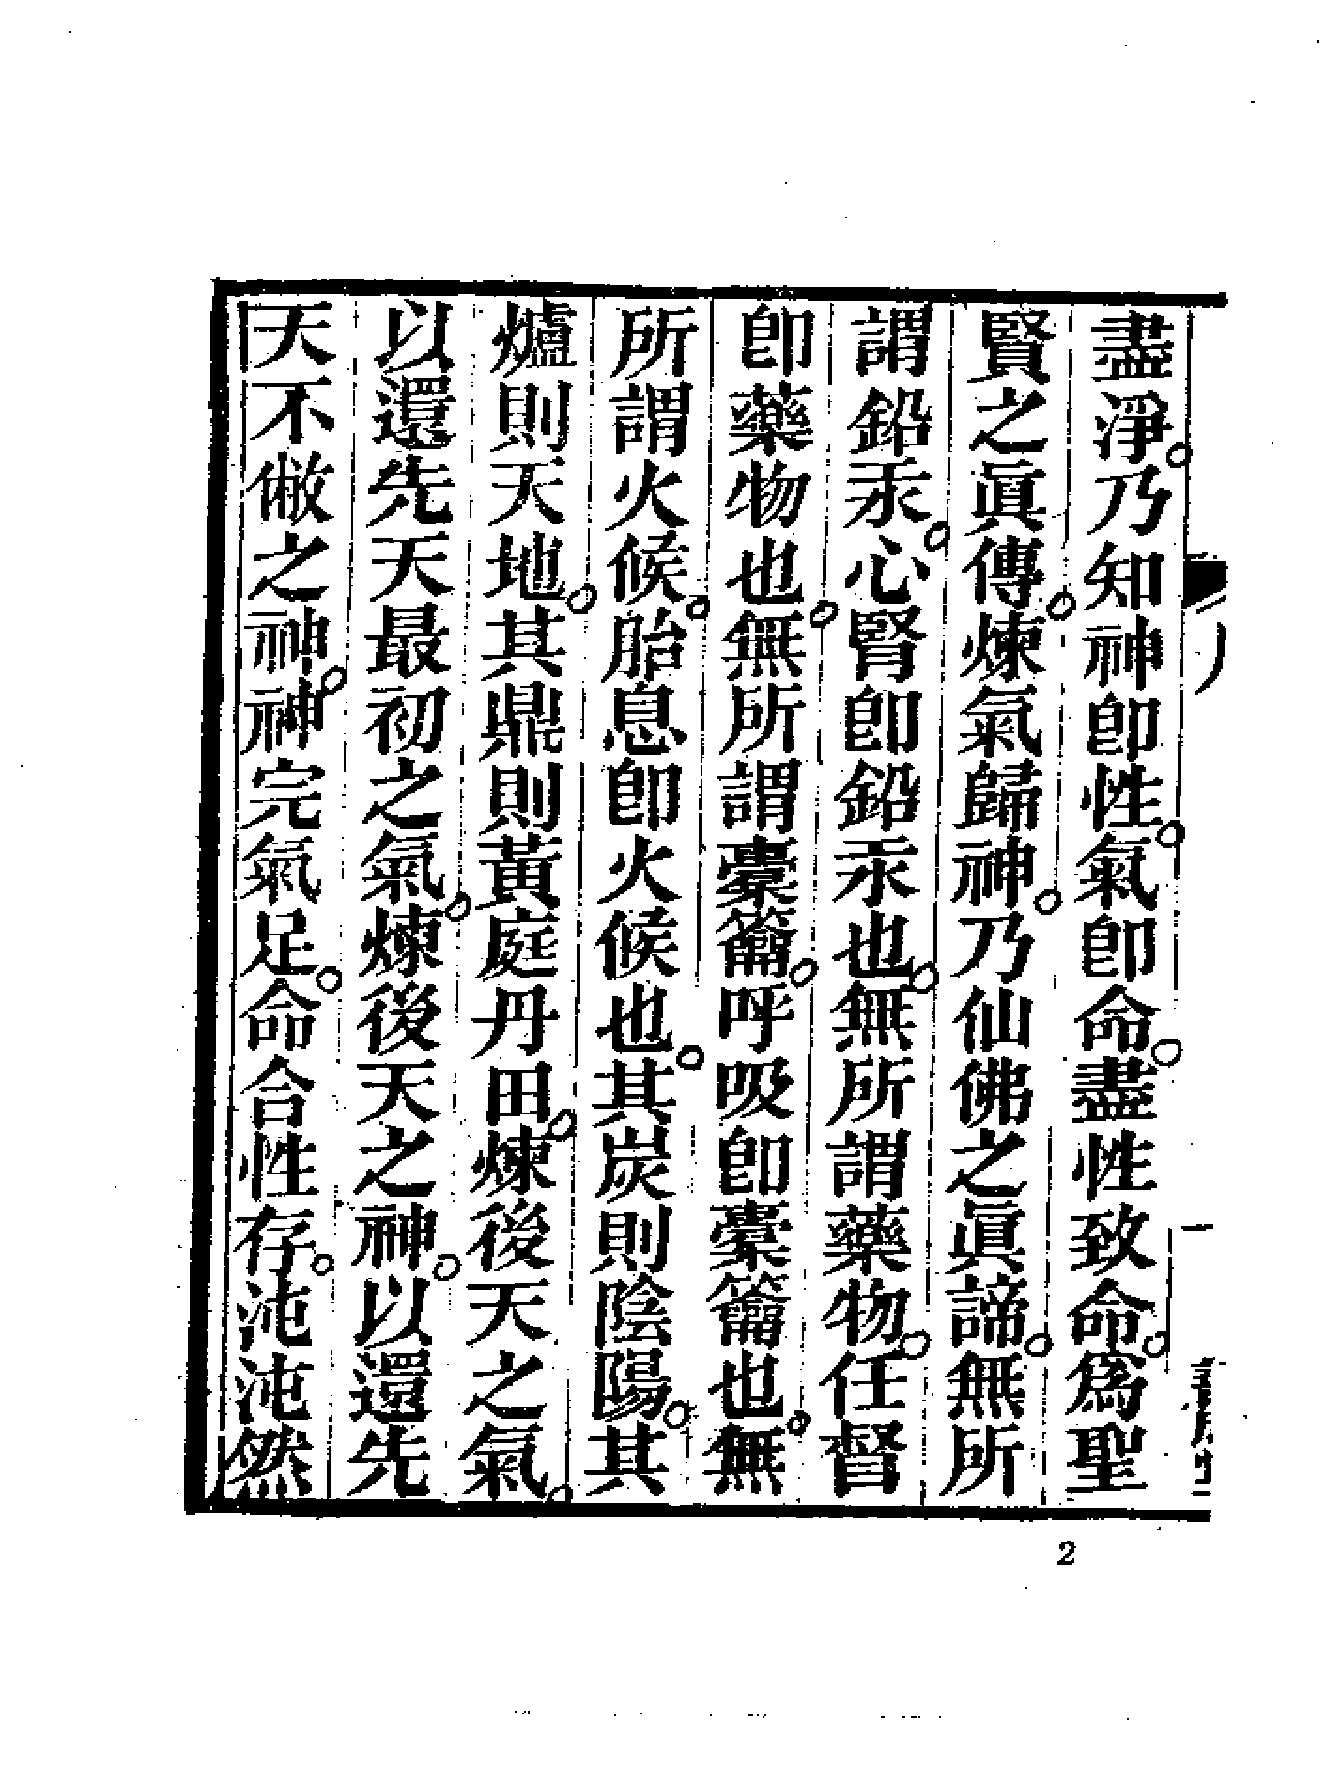 盡淨。乃知神卽性。氣卽命。盡性致命。爲聖
賢之眞傳。煉氣歸神。乃仙佛之眞諦。無所
謂鉛汞。心腎卽鉛汞也。無所謂藥物。任督
卽藥物也。無所謂橐籥。呼吸卽橐籥也。無
所謂火候。胎息卽火候也。其炭則陰陽。其
爐則天地。其鼎則黃庭丹田。煉後天之氣。
以還先天最初之氣。煉後天之神。以還先
天不敝之神。神完氣足。命合性存。沌沌然
2